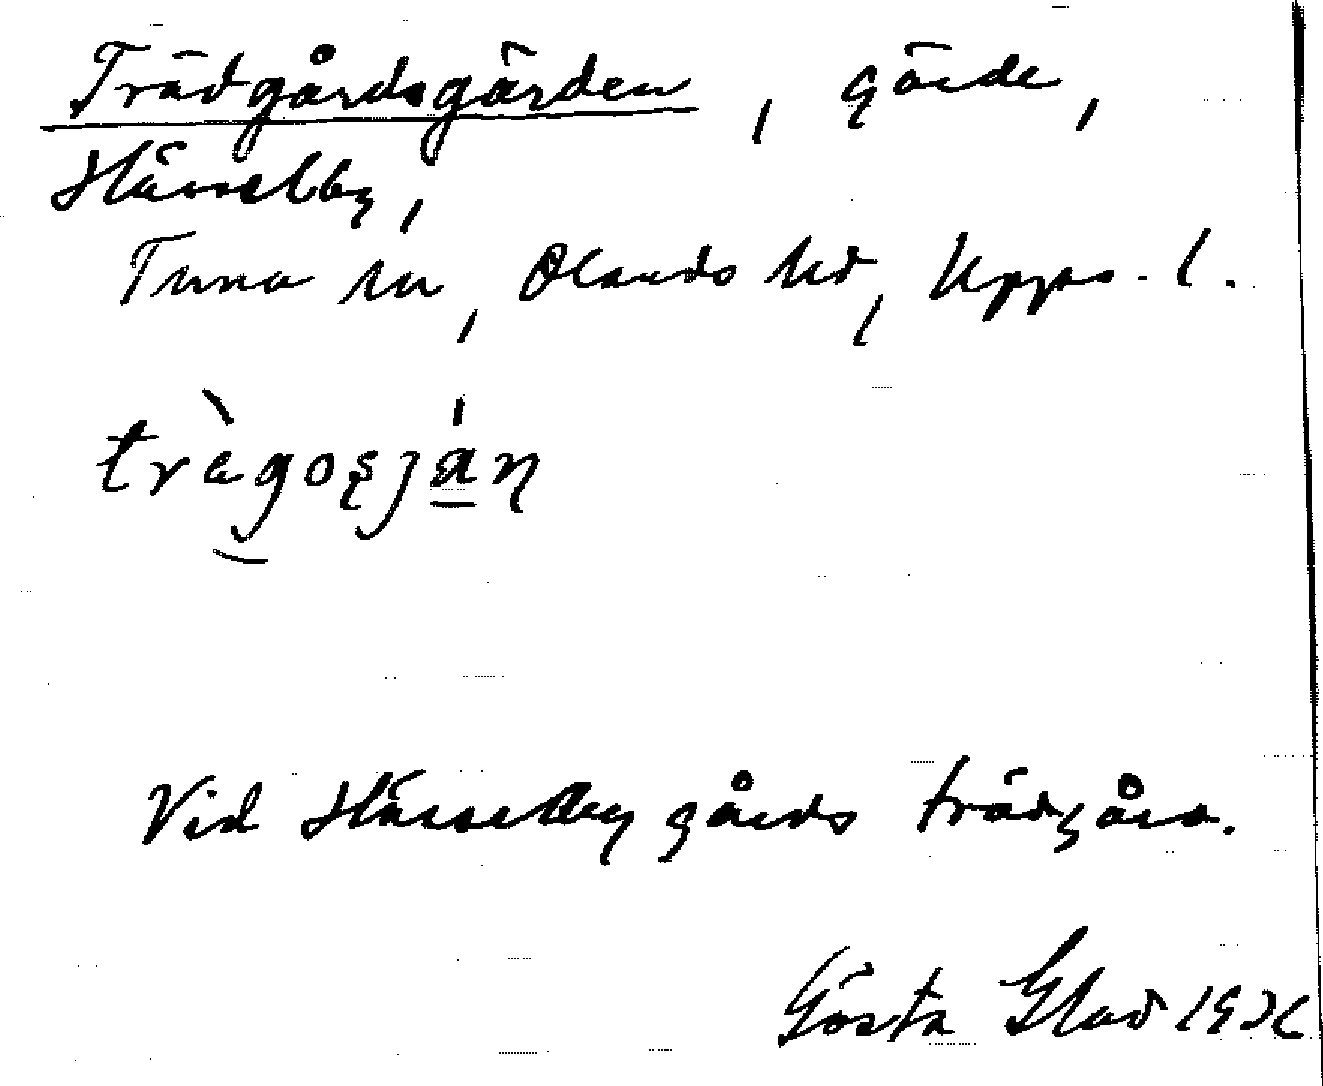 Trädgårdsgärden, gärde,
Hässelby,
Tuna sn, Olands hd, Upps. l.
Vid Hässelby gårds trädgård.
Gösta Glad